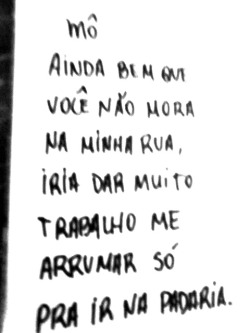 MÔ
AINDA BEM QUE
VOCÊ NÃO MORA
NA MINHA RUA,
IRIA DAR MUITO
TRABALHO ME
ARRUMAR SÓ
PRA IR NA PADARIA.